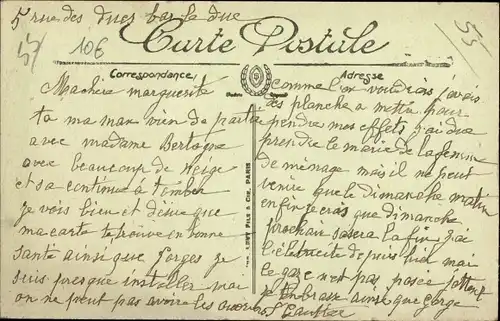 5 rue des ducs bar le duc
10€
Carte Postale
Correspondance
Adresse
Ma chère marguerite
ta ma man vien de partir
avec madame Bertogne
avec beaucoup de neige
et sa continue à tomber
je vois bien et désire que
ma carte te trouve en bonne
santé ainsi que Gorges je
suis presque installer mai
on ne peut pas avoire les
comme l'on voudrais j'avais
des planche a mettre pour
pendre mes effets j'ai du
prendre le marie de la femme
de ménage mais il ne peut
venire que le dimanche matin
enfin je crois que dimanche
prochain sasera la fin j'ai
l'életricité depuis hier mai
le gaze n'est pas posée
je t'enbrasse ainsi que Gorge
LEVY FILS & Cie, PARIS